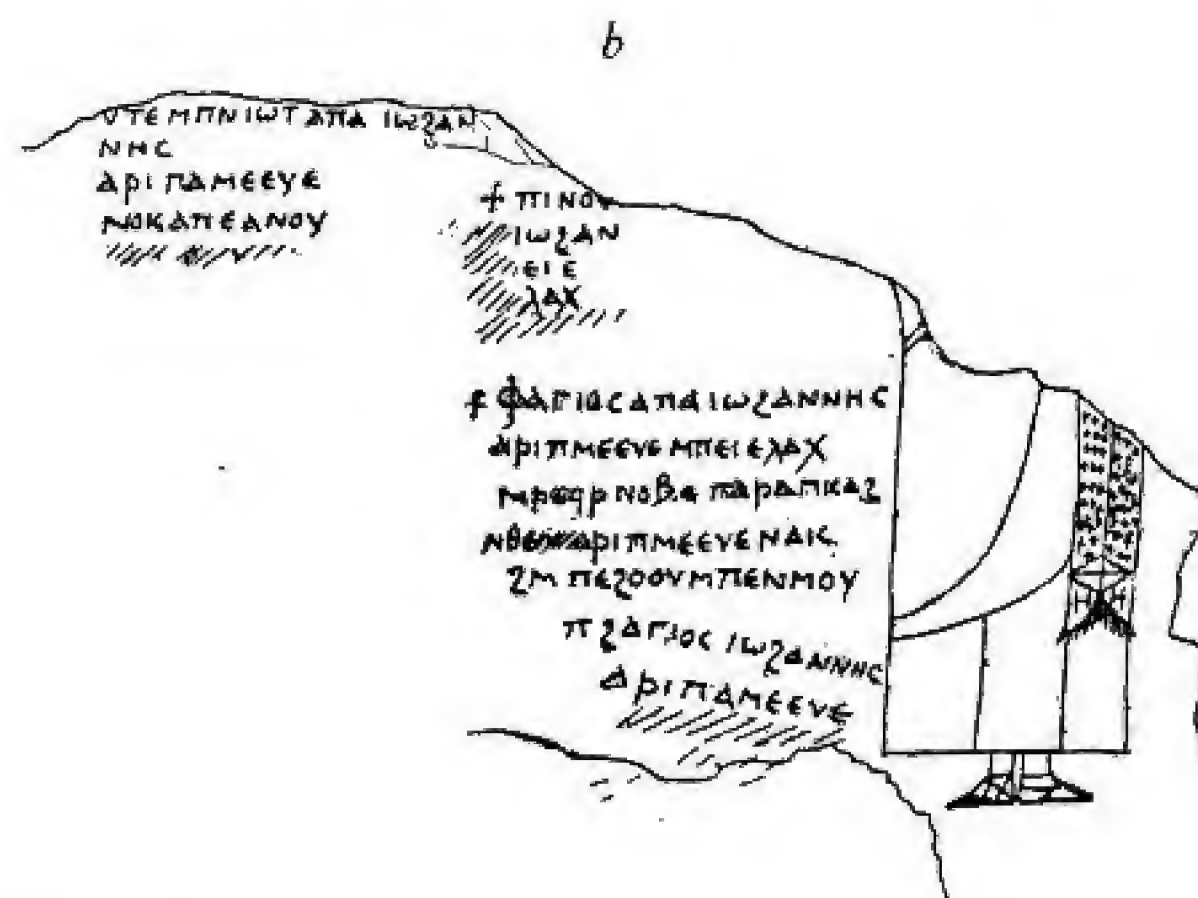 b
ⲩⲧⲉⲙⲡⲛⲓⲱⲧ ⲁⲡⲁ ⲓⲱϩⲁⲛ
ⲛⲏⲥ
ⲁⲣⲓⲡⲁⲙⲉⲉⲩⲉ
ⲛⲟⲕⲁⲡⲉⲁⲛⲟⲩ
ⲡⲓⲛⲟⲩ
ⲓⲱϩⲁⲛ
ⲉⲓⲉ
ⲗⲁⲭ
ⲫⲁⲅⲓⲟⲥ ⲁⲡⲁ ⲓⲱϩⲁⲛⲛⲏⲥ
ⲁⲣⲓⲡⲙⲉⲉⲩⲉ ⲙⲡⲉⲓⲉⲗⲁⲭ
ⲛⲣⲉϥⲣⲛⲟⲃⲉ ⲡⲁⲣⲁⲡⲕⲁϩ
ⲁⲣⲓⲡⲙⲉⲉⲩⲉ ⲛⲁⲓⲥ
ϩⲙ ⲡⲉϩⲟⲟⲩ ⲙⲡⲉⲛⲙⲟⲩ
ⲡϩⲁⲅⲓⲟⲥ ⲓⲱϩⲁⲛⲛⲏⲥ
ⲁⲣⲓⲡⲁⲙⲉⲉⲩⲉ